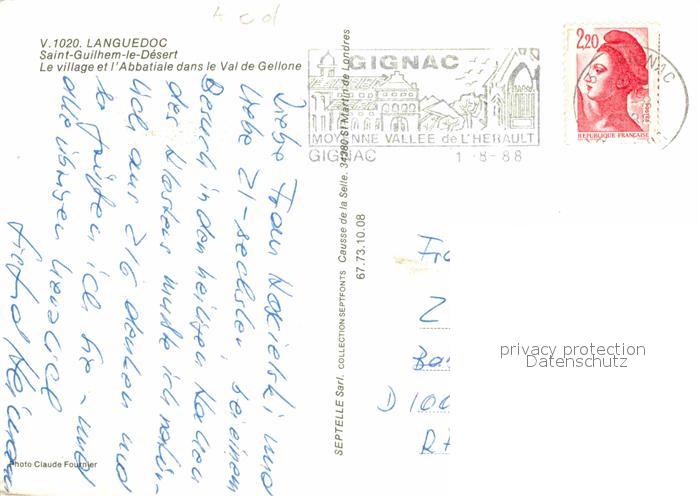 4 cd
V.1020. LANGUEDOC
Saint-Guilhem-le-Désert
Le village et l'Abbatiale dans le Val de Gellone
GIGNAC
MOYENNE VALLEE de L'HERAULT
GIGNAC 1-8-88
2,20
Postes
REPUBLIQUE FRANÇAISE
GIGNAC
Liebe Frau und
liebe 21-sechster, bei einem
Besuch in den heiligen Hallen
des Klosters mußte ich natür-
lich aus 216 denken und
so grüßen ich Sie - und
alle übrigen herzlich
SEPTELLE Sarl. COLLECTION SEPTFONTS Causse de la Selle. 34380 St Martin de Londres
67.73.10.08
Fr
Z
Ba
D 100
privacy protection
Datenschutz
Photo Claude Fournier